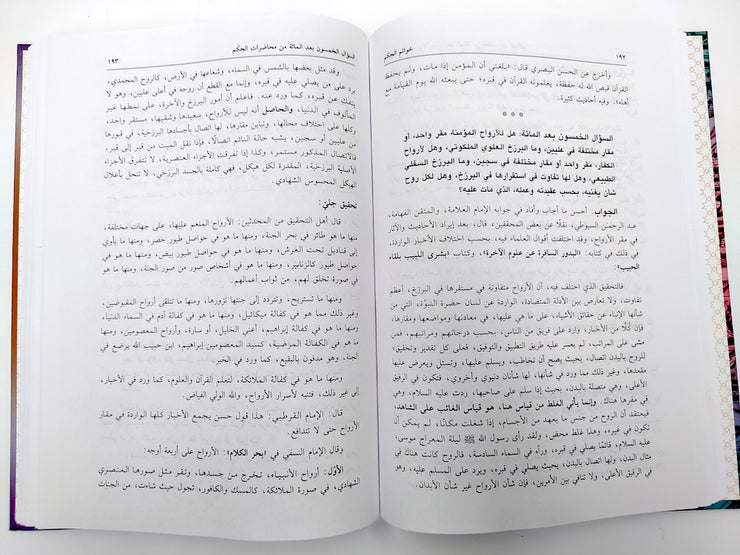 ١٩٢ خواتم الحكم
وأخرج عن الحسن البصري قال: «بلغني أن المؤمن إذا مات، ولم يحفظ
القرآن قيض الله له حفظة، يعلمونه القرآن في قبره؛ حتى يبعثه الله يوم القيامة مع
أهله». وفيه أحاديث كثيرة.
* * *
السؤال الخمسون بعد المائة: هل للأرواح المؤمنة مقر واحد، أو
مقار مختلفة في عليين، وما البرزخ العلوي الملكوتي، وهل لأرواح
الكفار، مقر واحد أو مقار مختلفة في سجين، وما البرزخ السفلي
الطبيعي، وهل لها تفاوت في استقرارها في البرزخ، وهل لكل روح
شأن يغنيه، بحسب عقيدته وعمله، الذي مات عليه؟
الجواب: أحسن ما أجاب وأفاد في جوابه الإمام العلامة، والمتقن الفهامة،
عبد الرحمن السيوطي، نقلًا عن بعض المحققين، قال، بعد إيراد الأحاديث والآثار
في مقر الأرواح: وقد اختلفت أقوال العلماء فيه، بحسب اختلاف الأخبار الواردة،
في ذلك في كتابه: «البدور السافرة عن علوم الآخرة»، وكتاب «بشرى اللبيب بلقاء
الحبيب»:
فالتحقيق الذي يختلف فيه، أن الأرواح متفاوتة في مستقرها في البرزخ، أعظم
تفاوت، ولا تعارض بين الأدلة المتضادة، الواردة عن لسان حضرة النبوّة، التي من
شأنها الإنباء عن حقائق الأشياء، على ما هي عليها، في معادنها ومواضعها ومقارها،
فإن كلًا من الأخبار، وارد على فريق من الناس، بحسب درجاتهم ومراتبهم، فمن
مشى على المراتب، لم يعسر عليه طريق التطبيق والتوفيق، فعلى كل تقدير وتحقيق،
للروح بالبدن اتصال، بحيث يصح أن تخاطب، ويسلم عليها، وتسئل ويعرض عليها
مقعدها، وغير ذلك مما ورد في شأنها، لها شأنان دنيوي وأخروي، فتكون في الرفيق
الأعلى، وهي متصلة بالبدن، بحيث إذا سلم على صاحبها، ردت عليه السلام، وهي
في مقرها هناك. وإنما يأتي الغلط من قياس هنا، هو قياس الغائب على الشاهد،
فيعتقد أن الروح من جنس ما يعهد من الأجسام، إذا شغلت مكانًا، لم يمكن أن
تكون في غيره، وهذا غلط محض، ولقد رأى رسول الله ﷺ ليلة المعراج موسى،
عليه السلام، قائمًا يصلي في قبره، ورآه في السماء السادسة، فالروح كانت هناك في
مثال البدن، ولها اتصال بالبدن، بحيث يصلي في قبره، ويرد على المسلم عليه، وهو
في الرفيق الأعلى، ولا تنافي بين الأمرين، فإن شأن الأرواح غير شأن الأبدان.
السؤال الخمسون بعد المائة من محاضرات الحكم ١٩٣
وقد مثل بعضها بالشمس في السماء، وشعاعها في الأرض، كالروح المحمدي،
يرد على من يصلي عليه في قبره، وإنما مع القطع أن روحه في أعلى عليين، وهو لا
ينفك عن قبره، كما ورد عنه. فاعلم أن أمور البرزخ والآخرة، على نمطها غير
المألوف في الدنيا، والحاصل أنه ليس للأرواح، سعيدها وشقيها، مستقر واحد،
وكلها على اختلاف محالها، وتباين مقارها، لها اتصال بأجسادها البرزخية، في قبورها
من عليين أو سجين، يشبه حالة النائم اتصالًا، فإذا نقل الميت من قبر إلى قبر،
فالاتصال المذكور مستمر، وكذا إذا تفرقت الأجزاء العنصرية، لا تتفرق الأجزاء
الأصلية البرزخية، المقدرة لكل هيكل، فهي كاملة بالجسد البرزخي، لا تنحل بأغلال
الهيكل المحسوس الشهادي.
تحقيق جليّ:
قال أهل التحقيق من المحدثين: الأرواح المنعم عليها، على جهات مختلفة،
منها ما هو طائر في بحر الجنة، ومنها ما هو في حواصل طيور خضر، ومنها ما يأوي
إلى قناديل تحت العرش، ومنها ما هو في حواصل طيور بيض، ومنها ما هو في
حواصل طيور كالزنابير، ومنها ما هو في أشخاص صور من صور الجنة، ومنها ما هو
في صورة تخلق لهم، من ثواب أعمالهم.
ومنها ما تستريح، وتتردد إلى جثتها تزورها، ومنها ما تتلقى أرواح المقبوضين،
وغير ذلك مما هو في كفالة ميكائيل، ومنها ما هو في كفالة آدم في السماء الدنيا،
ومنها ما هو في كفالة إبراهيم، أعني الخليل، أو سارة، وأرواح المعصومين، ومنها
ما هو في الكفالة المرضية، كسيد المعصومين إبراهيم، ابن حبيب الله يرضع في
الجنة، وهو مدفون بالبقيع، كما ورد في الخبر.
ومنها ما هو في كفالة الملائكة، لتعلم القرآن والعلوم، كما ورد في الأخبار،
إلى غير ذلك، فتنبه لأسرار الأرواح، والله الولي الفياض.
قال: الإمام القرطبي: هذا قول حسن يجمع الأخبار كلها الواردة في مقار
الأرواح حتى لا تتدافع.
وقال الإمام النسفي في «بحر الكلام»: الأرواح على أربعة أوجه:
الأوّل: أرواح الأنبياء، تخرج من جسدها، وتقر مثل صورها العنصري
الشهادي، في صورة الملائكة، كالمسك والكافور، تجول حيث شاءت، من الجنات